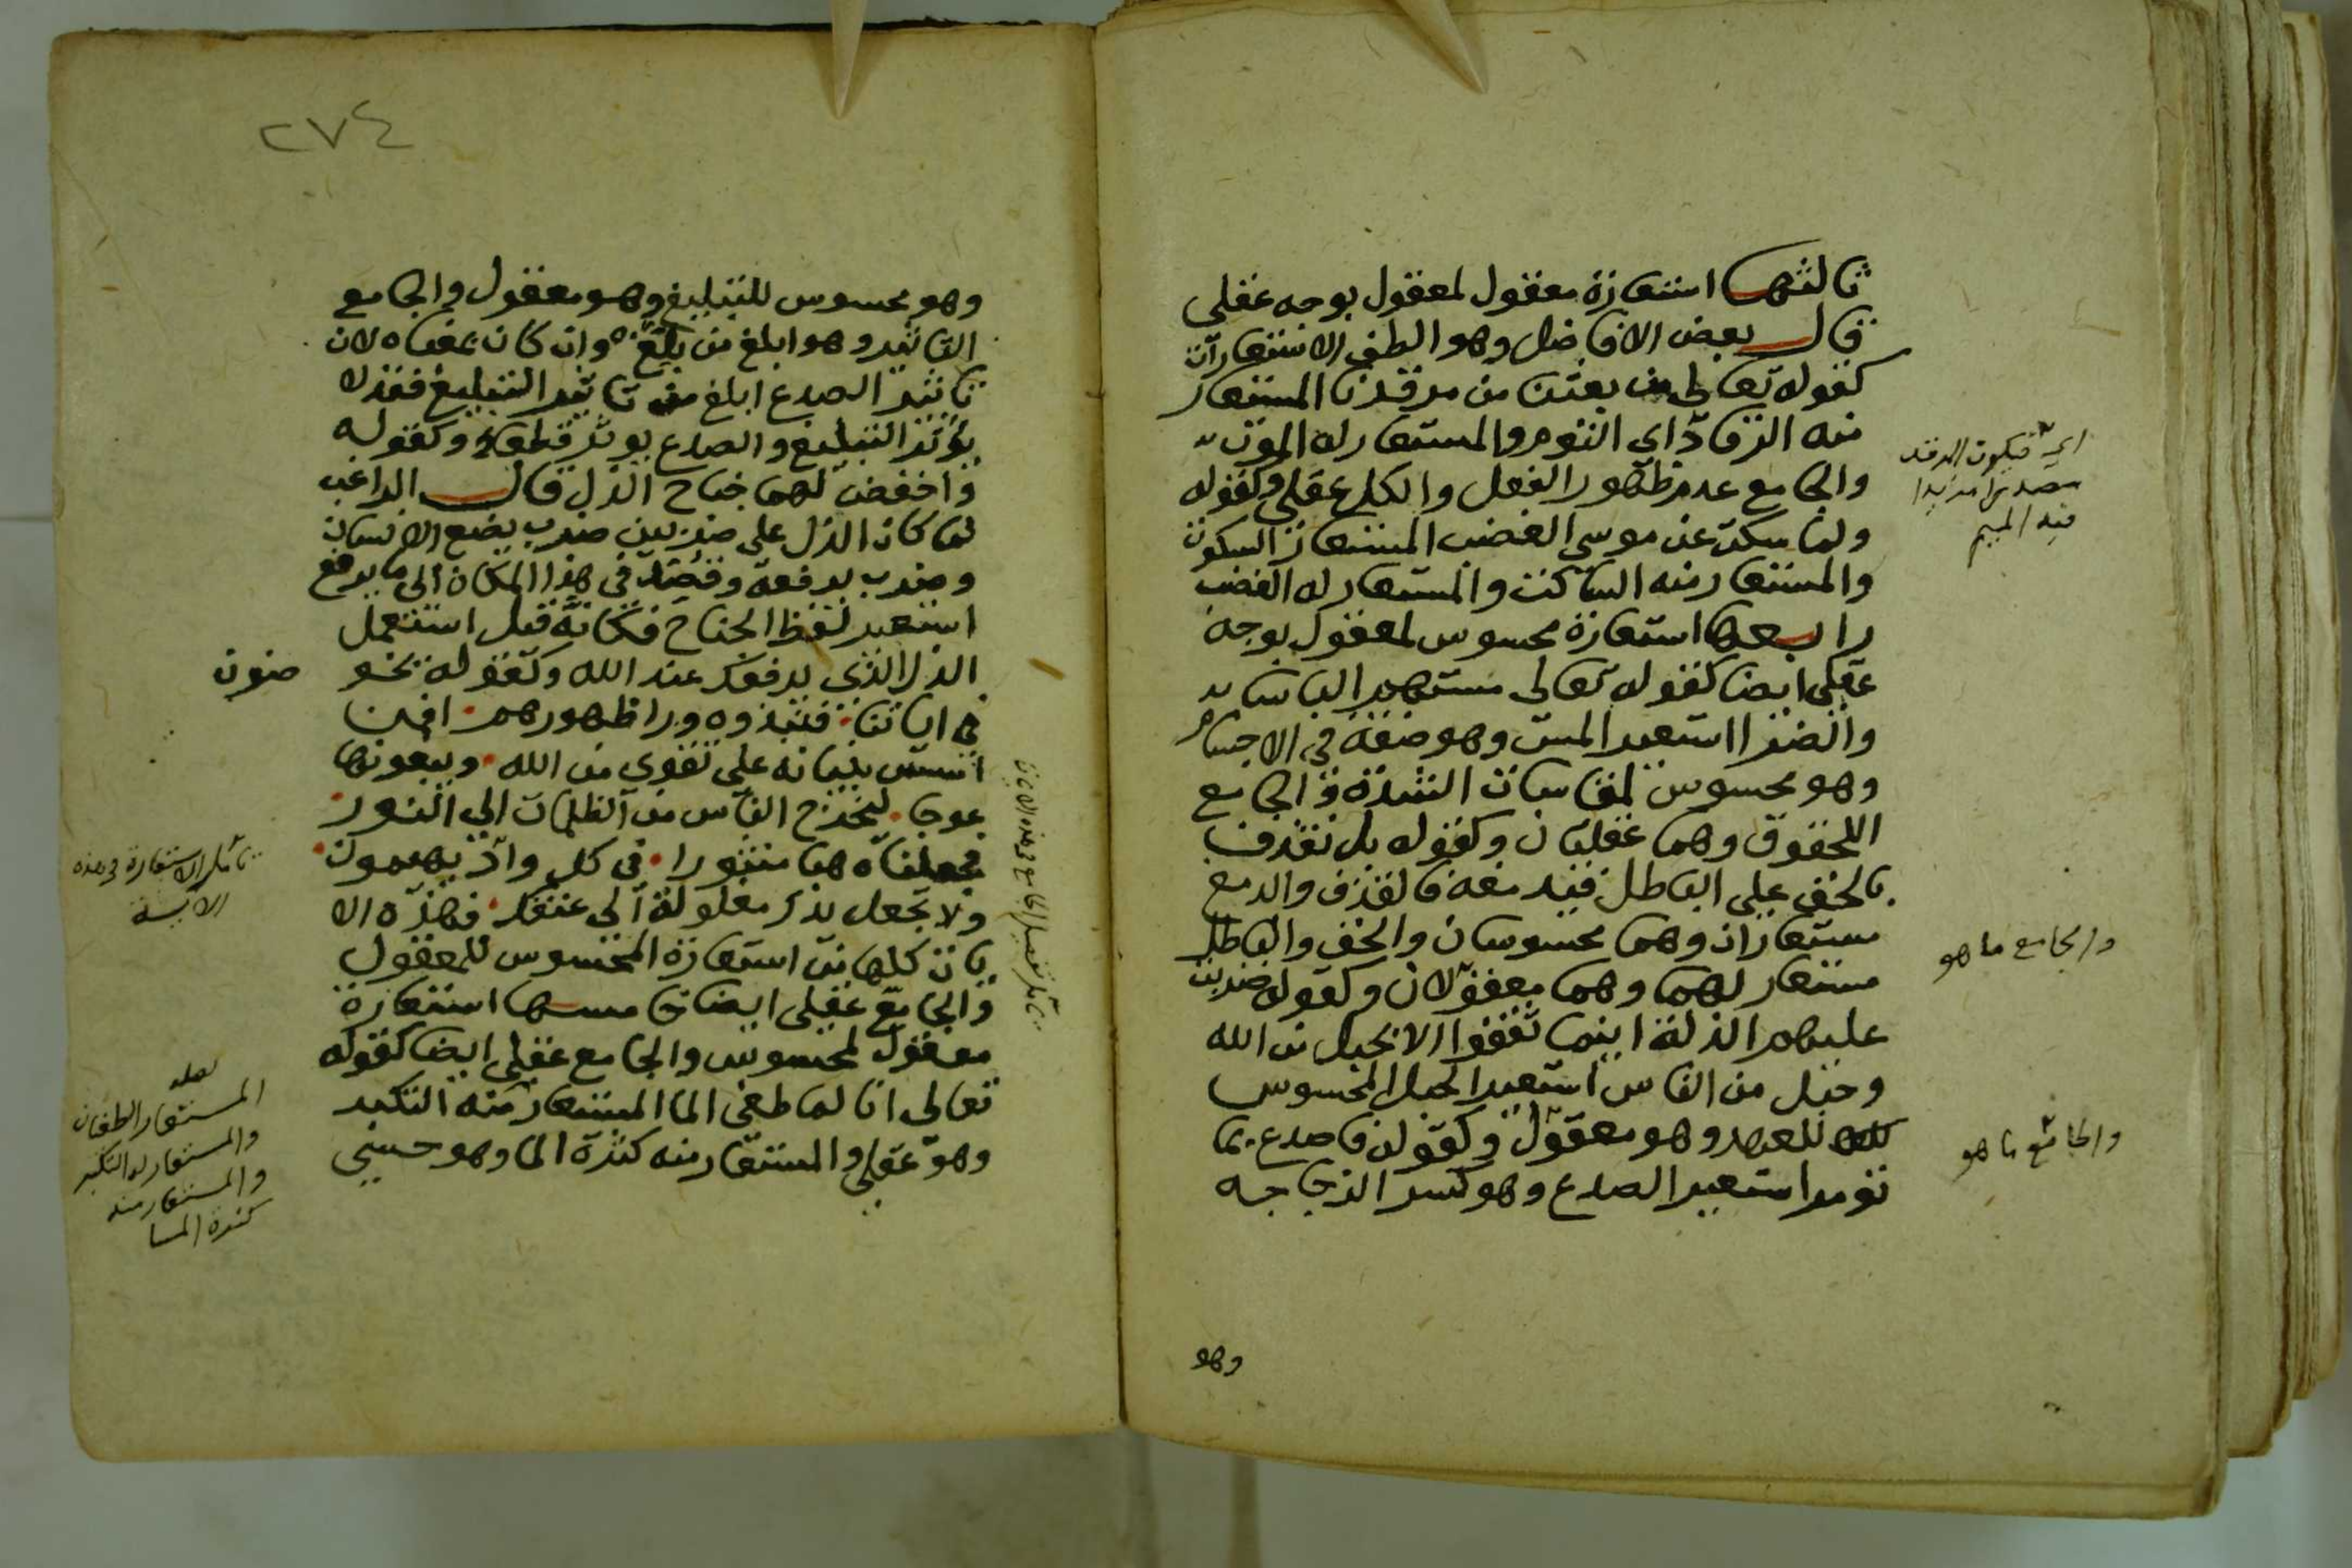 ثالثها استعارة معقول لمعقول بوجه عقلي
قال بعض الافاضل وهو الطف الاستعارات
كقوله تعالى من بعثنا من مرقدنا المستعار
منه الرقاد اي النوم والمستعار له الموت
والجامع عدم ظهور الفعل والكل عقلي وكقوله
ولما سكت عن موسى الغضب المستعار السكوت
والمستعار منه الساكت والمستعار له الغضب
رابعها استعارة محسوس لمعقول بوجه
عقلي ايضا كقوله تعالى مستهم الباساء
والضراء استعير المس وهو صفة في الاجسام
وهو محسوس لمقاساة الشدة والجامع
اللحقوق وهما عقليان وكقوله بل نقذف
بالحق على الباطل فيدمغه فالقذف والدمغ
مستعاران وهما محسوسان والحق والباطل
مستعار لهما وهما معقولان وكقوله ضربت
عليهم الذلة اينما ثقفوا الا بحبل من الله
وحبل من الناس استعير الحبل المحسوس
للعهد وهو معقول وكقوله فاصدع بما
تومر استعير الصدع وهو كسر الزجاجه
وهو
اي فيكون المرقد
مصدرا مزيدا
فيه الميم
والجامع ما هو
والجامع ما هو
٢٧٤
وهو محسوس للتبليغ وهو معقول والجامع
التاثير وهو ابلغ من بلغ وان كان بمعناه لان
تاثير الصدع ابلغ من تاثير التبليغ فقد لا
يؤثر التبليغ والصدع يوثر قطعا وكقوله
واخفض لهما جناح الذل قال الراغب
لما كان الذل على ضربين ضرب يضع الانسان
وضرب يرفعه وقصد في هذا المكان الى ما يرفع
استعير لفظ الجناح فكانه قيل استعمل
الذل الذي يرفعك عند الله وكقوله يخو
ضون
في اياتنا فنبذوه ورا ظهورهم افمن
اسس بنيانه على تقوى من الله ويبغونها
عوجا ليخرج الناس من الظلمات الى النور
فجعلناه هبا منثورا في كل واد يهيمون
ولا تجعل يدك مغلولة الى عنقك فهذه الا
يات كلها من استعارة المحسوس للمعقول
والجامع عقلي ايضا خامسها استعارة
معقول لمحسوس والجامع عقلي ايضا كقوله
تعالى انا لما طغى الما المستعار منه التكبر
وهو عقلي والمستعار منه كثرة الما وهو حسي
تامل الاستعارة في هذه
الاية
لعله
المستعار الطغيان
والمستعار له التكبر
والمستعار منه
كثرة الما